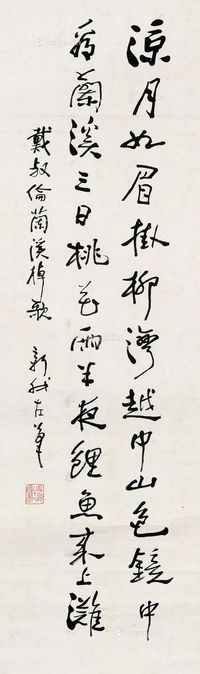 凉月如眉掛柳灣越中山色鏡中
看蘭溪三日桃花雨半夜鯉魚来上灘
戴叔倫蘭溪棹歌 新我左筆